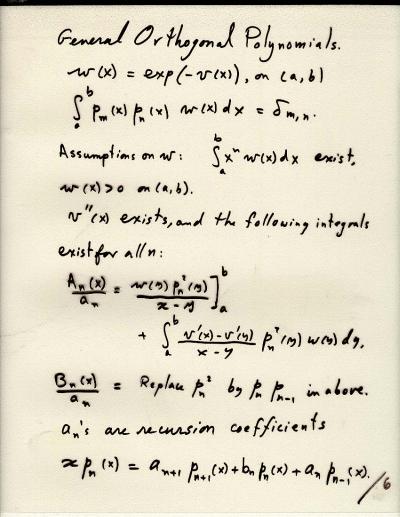 General Orthogonal Polynomials.
w(x) = exp(-v(x)), on (a,b)
∫_a^b p_m(x) p_n(x) w(x) dx = δ_{m,n}.
Assumptions on w: ∫_a^b x^n w(x) dx exist,
w(x) > 0 on (a,b).
v''(x) exists, and the following integrals
exist for all n:
A_n(x)/a_n = w(y) p_n^2(y)/(x-y) ]_a^b
+ ∫_a^b (v'(x) - v'(y))/(x-y) p_n^2(y) w(y) dy,
B_n(x)/a_n = Replace p_n^2 by p_n p_{n-1} in above.
a_n's are recursion coefficients
x p_n(x) = a_{n+1} p_{n+1}(x) + b_n p_n(x) + a_n p_{n-1}(x).
/6